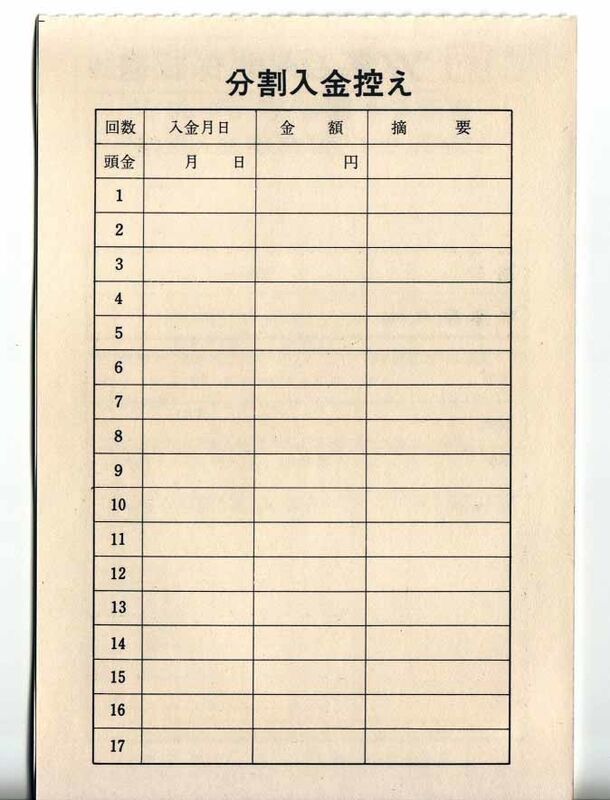 分割入金控え
回数 入金月日 金 額 摘 要
頭金 月 日 円
1
2
3
4
5
6
7
8
9
10
11
12
13
14
15
16
17